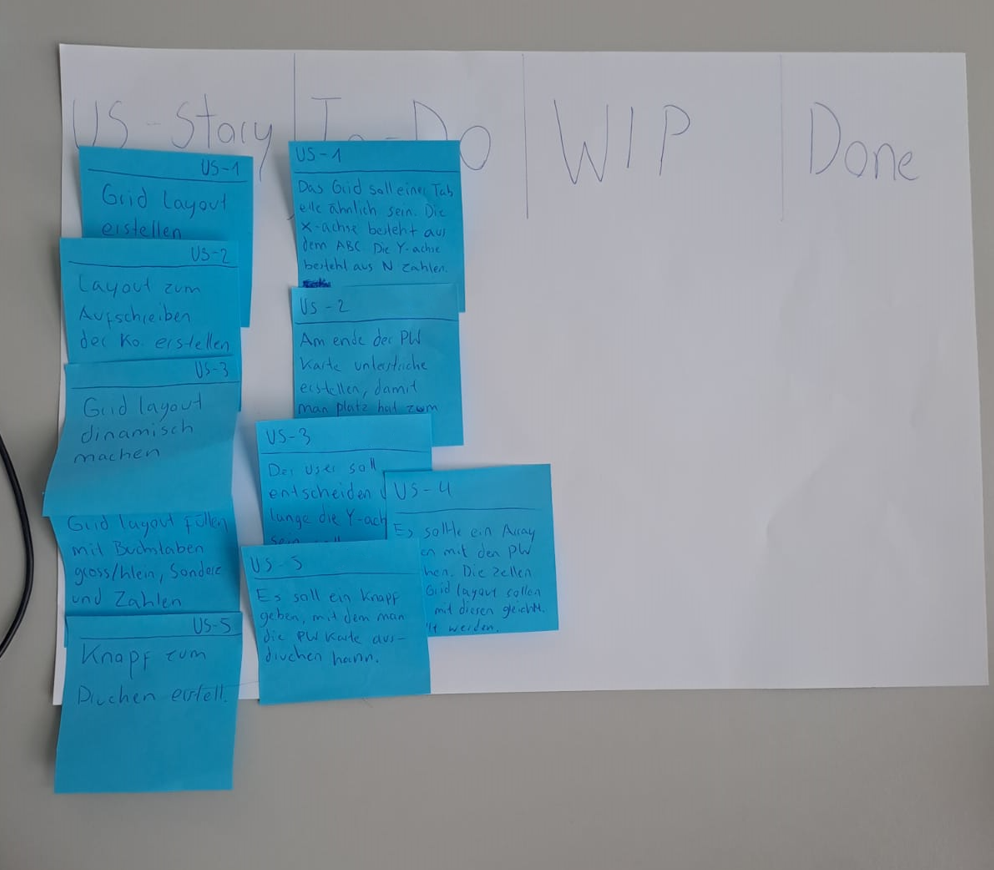 US-Story
To-Do
WIP
Done
US-1
Grid Layout
erstellen
US-2
Layout zum
Aufschreiben
der Ko. erstellen
US-3
Grid layout
dinamisch
machen
Grid layout füllen
mit Buchstaben
gross/klein, Sonder
und Zahlen
US-5
Knopf zum
Drucken erstell.
US-1
Das Grid soll einer Tab
elle ähnlich sein. Die
X-achse besteht aus
dem ABC. Die Y-achse
besteht aus N Zahlen.
US-2
Am ende der PW
Karte unterstriche
erstellen, damit
man platz hat zum
US-3
Der User soll
entscheiden
lange die Y-ach
sein soll
US-4
Es sollte ein Array
en mit den PW
hen. Die zellen
Grid layout sollen
mit diesen gleichh.
lt werden.
US-5
Es soll ein Knopf
geben, mit dem man
die PW Karte aus-
drucken kann.